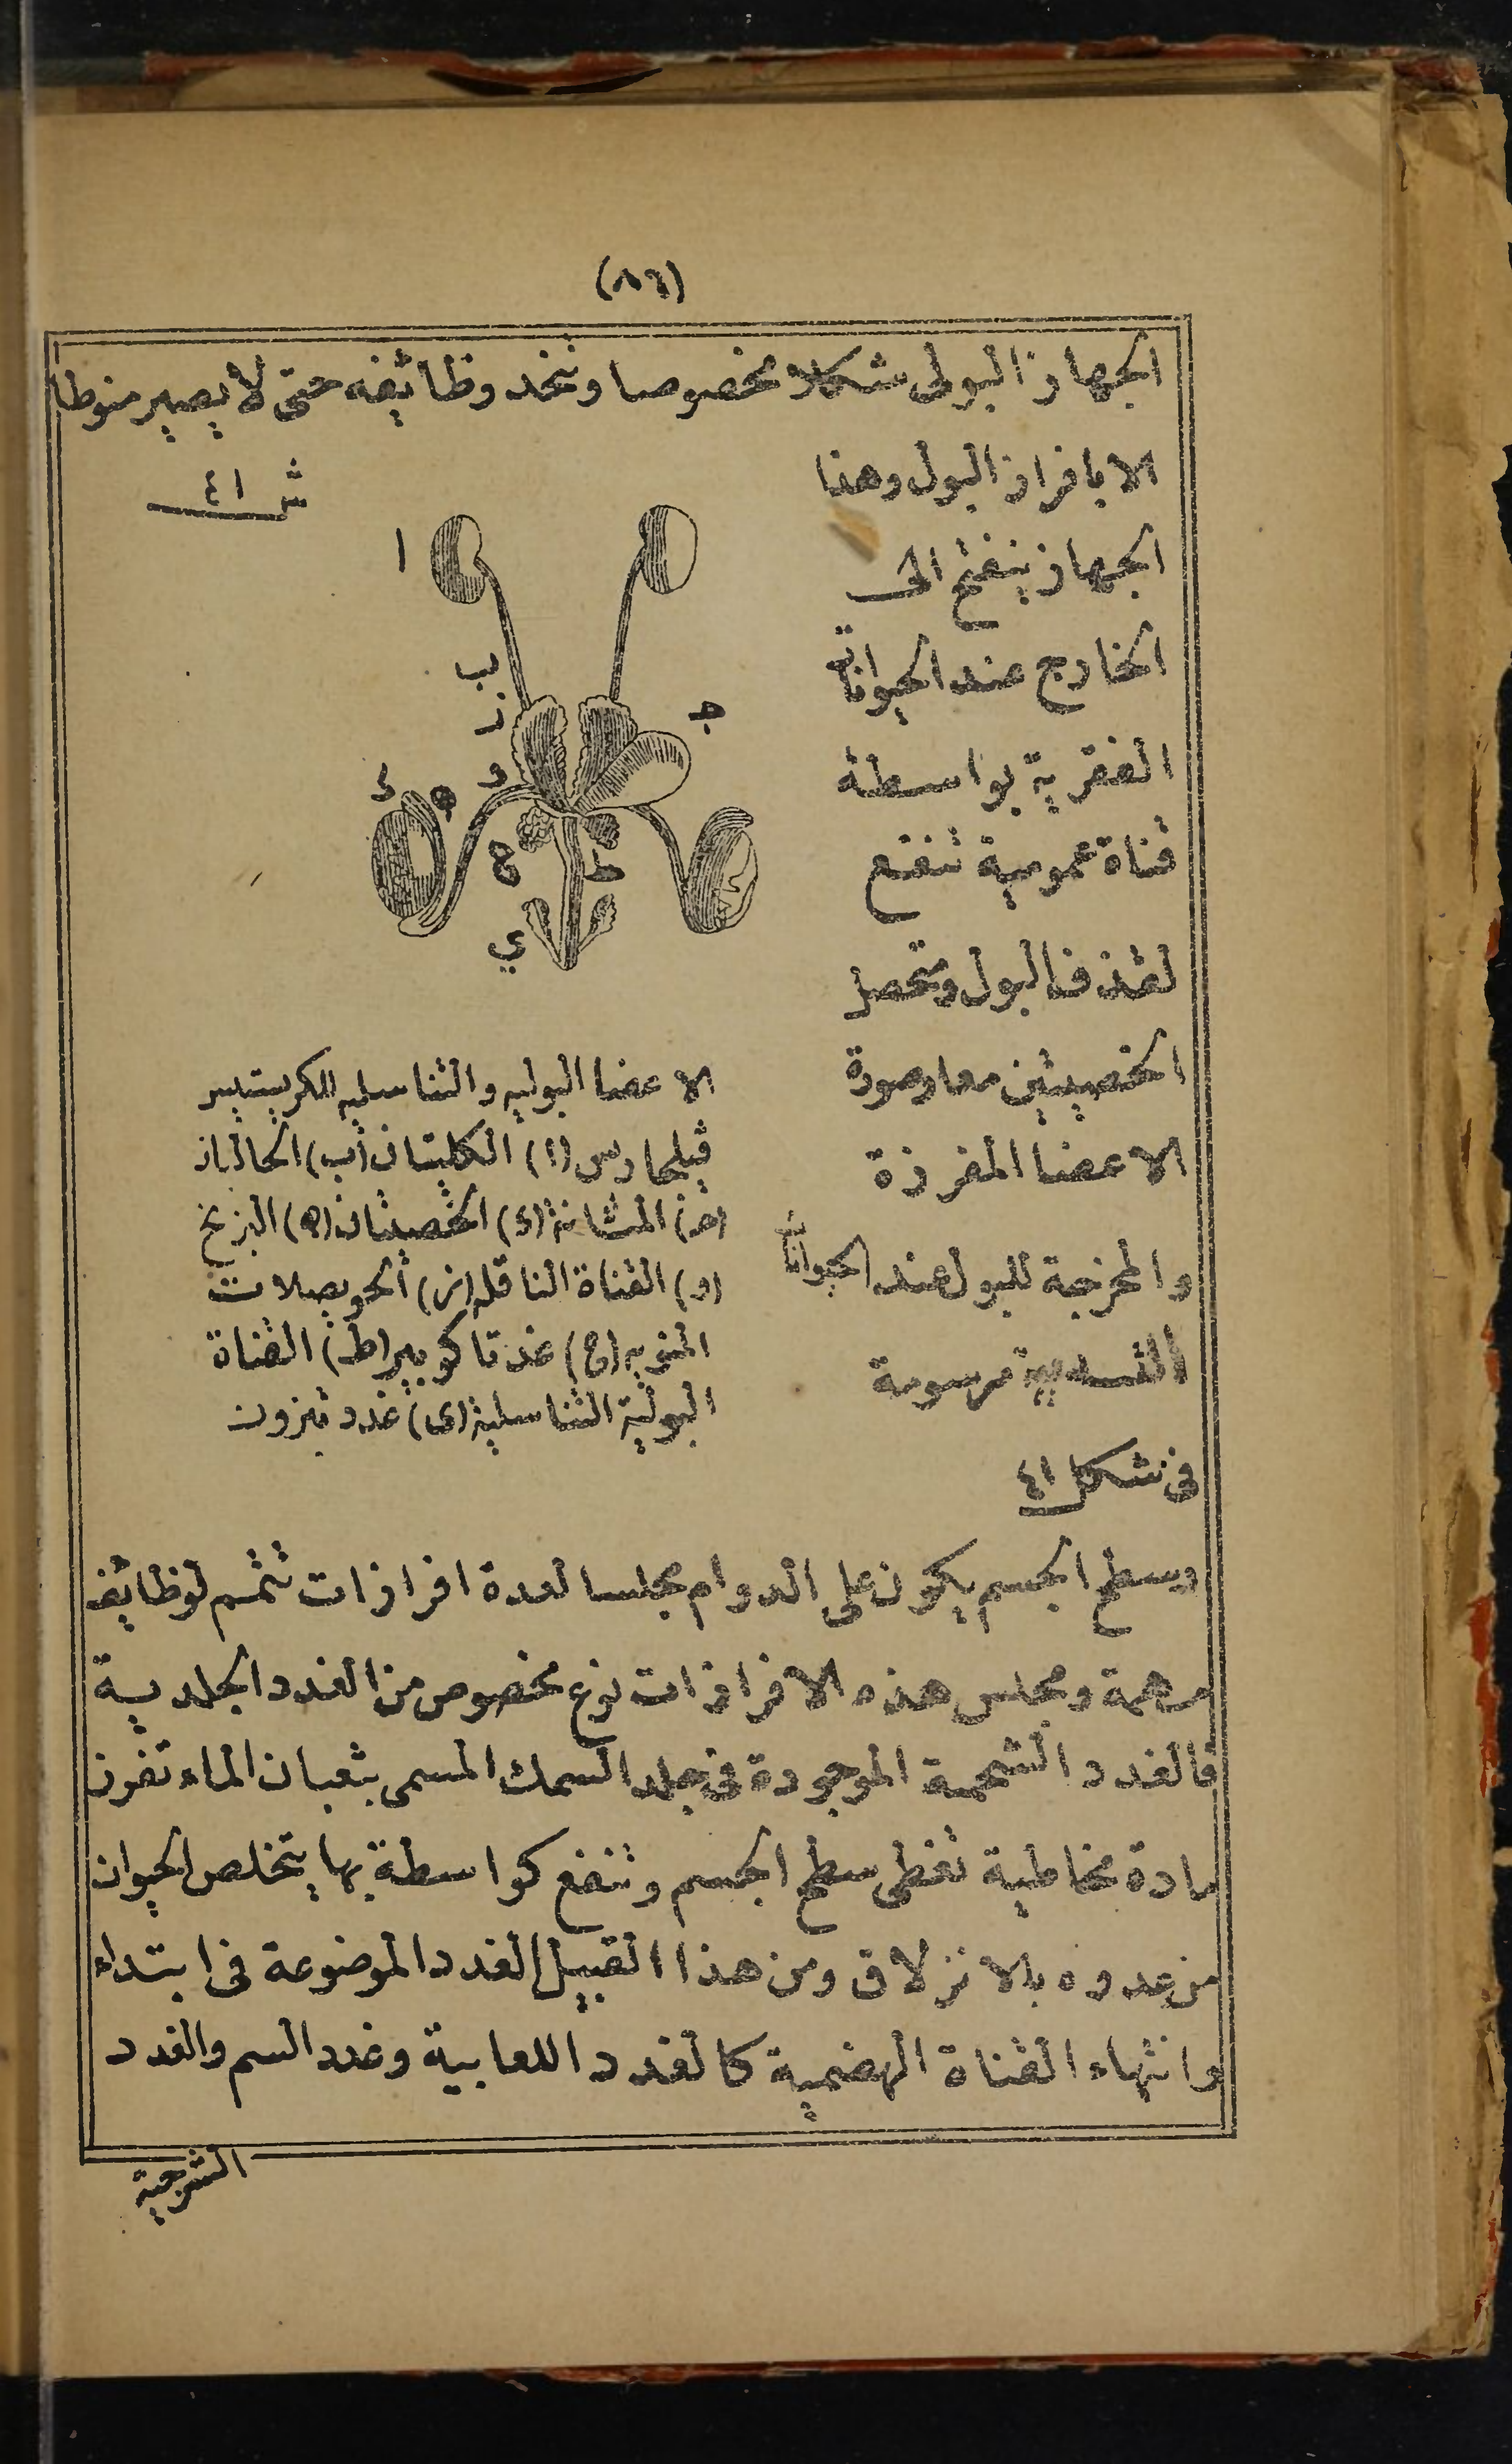 (٨٦)
الجهاز البولى شكلا مخصوصا وتتحد وظائفه حتى لا يصير منوطا
الا بافراز البول وهذا
الجهاز ينفتح الى
الخارج عند الحيوانات
الفقرية بواسطة
قناة عمومية تنفع
لقذف البول ومتحصل
الخصيتين معا وصورة
الاعضا المفرزة
والمخرجة للبول عند الحيوانات
الثديية مرسومة
فى شكل ٤١
ش ٤١
ا
ب
ز
ج
و
د
ه
ح
ط
ي
الاعضا البوليه والتناسليه للكريستيير
ڤيلجاريس (ا) الكليتان (ب) الحالبان
(ج) المثانة (د) الخصيتان (ه) البزيخ
(و) القناة الناقله (ز) الحويصلات
المنويه (ح) غدتا كوبير (ط) القناة
البولية التناسلية (ى) غدد تيزون
وسطح الجسم يكون على الدوام مجلسا لعدة افرازات تتمم لوظائف
مهمة ومجلس هذه الافرازات نوع مخصوص من الغدد الجلدية
فالغدد الشحمية الموجودة فى جلد السمك المسمى بثعبان الماء تفرز
مادة مخاطية تغطى سطح الجسم وتنفع كواسطة بها يتخلص الحيوان
من عدوه بالانزلاق ومن هذا القبيل الغدد الموضوعة فى ابتداء
وانتهاء القناة الهضمية كالغدد اللعابية وغدد السم والغدد
الشرجية